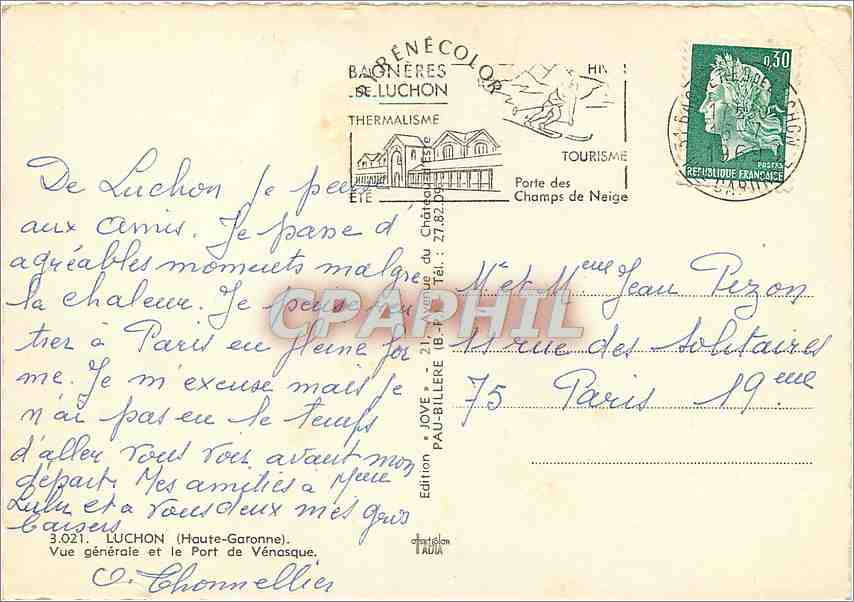 PYRÉNÉCOLOR
BAGNÈRES
DE LUCHON
THERMALISME
ÉTÉ
TOURISME
Porte des
Champs de Neige
0,30
POSTES
REPUBLIQUE FRANÇAISE
De Luchon je pense
aux amis. Je passe d'
agréables moments malgre
la chaleur. Je pense ren
trer à Paris en pleine for
me. Je m'excuse mais je
n'ai pas eu le temps
d'aller vous voir avant mon
départ. Mes amitiés a Mme
Lulu et a vous deux mes gros
baisers
O. Thonnellier
3.021. LUCHON (Haute-Garonne).
Vue générale et le Port de Vénasque.
Edition « JOVE » - 21, Avenue du Château d'Este
PAU-BILLERE (B.-P.) Tél. : 27.82.09
Mr et Mme Jean Pezon
11 rue des Solitaires
75 Paris 19eme
CPAPHIL